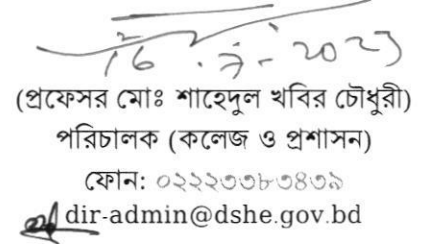 16.7.2023
(প্রফেসর মোঃ শাহেদুল খবির চৌধুরী)
পরিচালক (কলেজ ও প্রশাসন)
ফোন: ০২২২৩৩৮৩৪৩৯
dir-admin@dshe.gov.bd